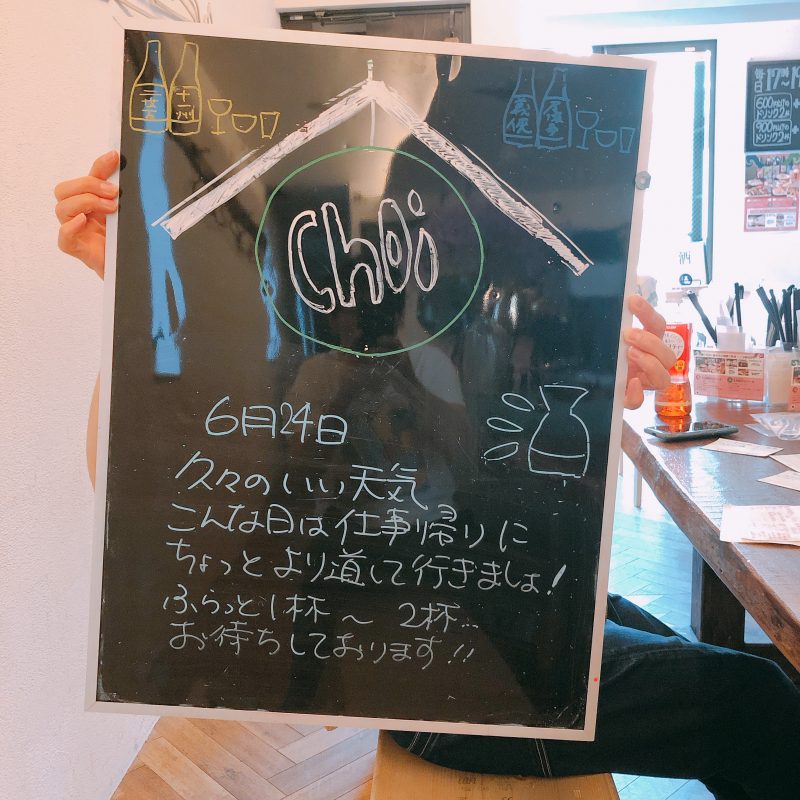 十州
Choi
6月24日
久々のいい天気
こんな日は仕事帰りに
ちょっとより道して行きましょ!
ふらっと1杯~2杯...
お待ちしております!!
毎日17時~19
600円以上で
ドリンク2杯
900円以上で
ドリンク2杯